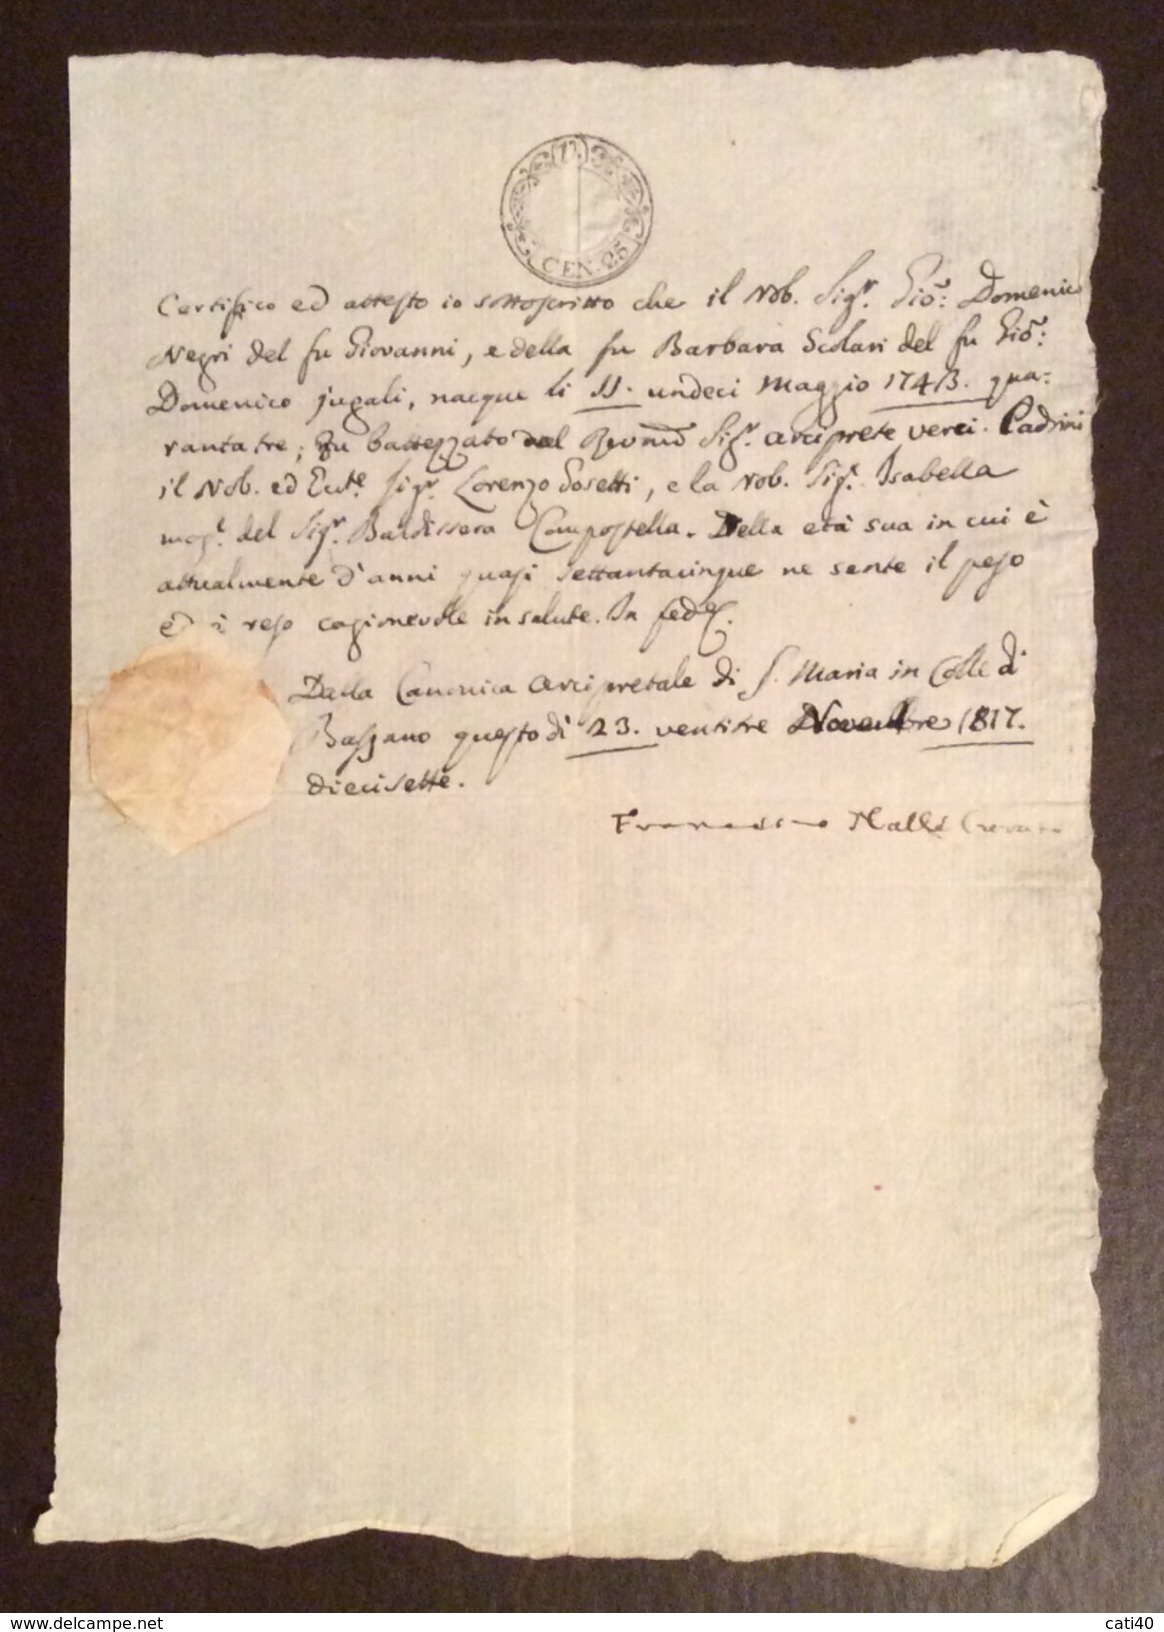 CEN. 25
Certifico ed attesto io sottoscritto che il Nob. Sigr. Gio: Domenico
Negri del fu Giovanni, e della fu Barbara Scolari del fu Gio:
Domenico jugali, nacque li 11. undeci Maggio 1743. qua:
rantatre; fu battezzato dal Revmo Sigr. arciprete Verci. Padrini
il Nob. ed Sigr. Lorenzo Gosetti, e la Nob. Sigra. Isabella
mogl. del Sigr. Baldissera Compostella. Della età sua in cui è
attualmente d'anni quasi settantacinque ne sente il peso
ed è reso cagionevole in salute. In fede.
Dalla Canonica Arcipretale di S. Maria in Colle di
Bassano questo dì 23. ventitre Novembre 1817.
diecisette.
Francesco
www.delcampe.net
cati40